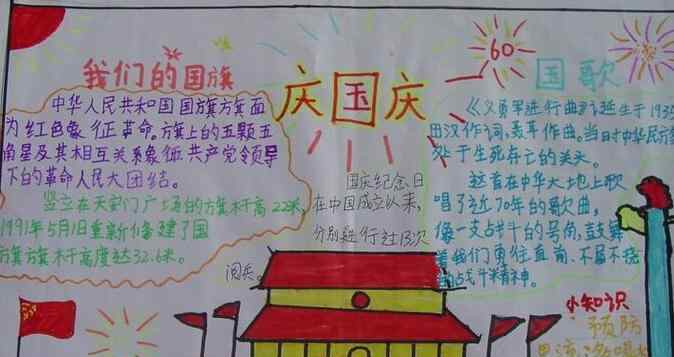 我们的国旗
中华人民共和国国旗旗面
为红色象征革命,旗上的五颗五
角星及其相互关系象征共产党领导
下的革命人民大团结。
竖立在天安门广场的旗杆高22米,
1991年5月1日重新修建了国
旗旗杆高度达32.6米。
庆国庆
国庆纪念日
在中国成立以来,
分别进行过13次
阅兵。
60
国歌
《义勇军进行曲》诞生于1935
田汉作词,聂耳作曲。当日时中华民
处于生死存亡的关头。
这首在中华大地上歌
唱了近70年的歌曲,
像一支战斗的号筒,鼓舞
着我们勇往直前,不屈不挠
战斗精神。
小知识
预防